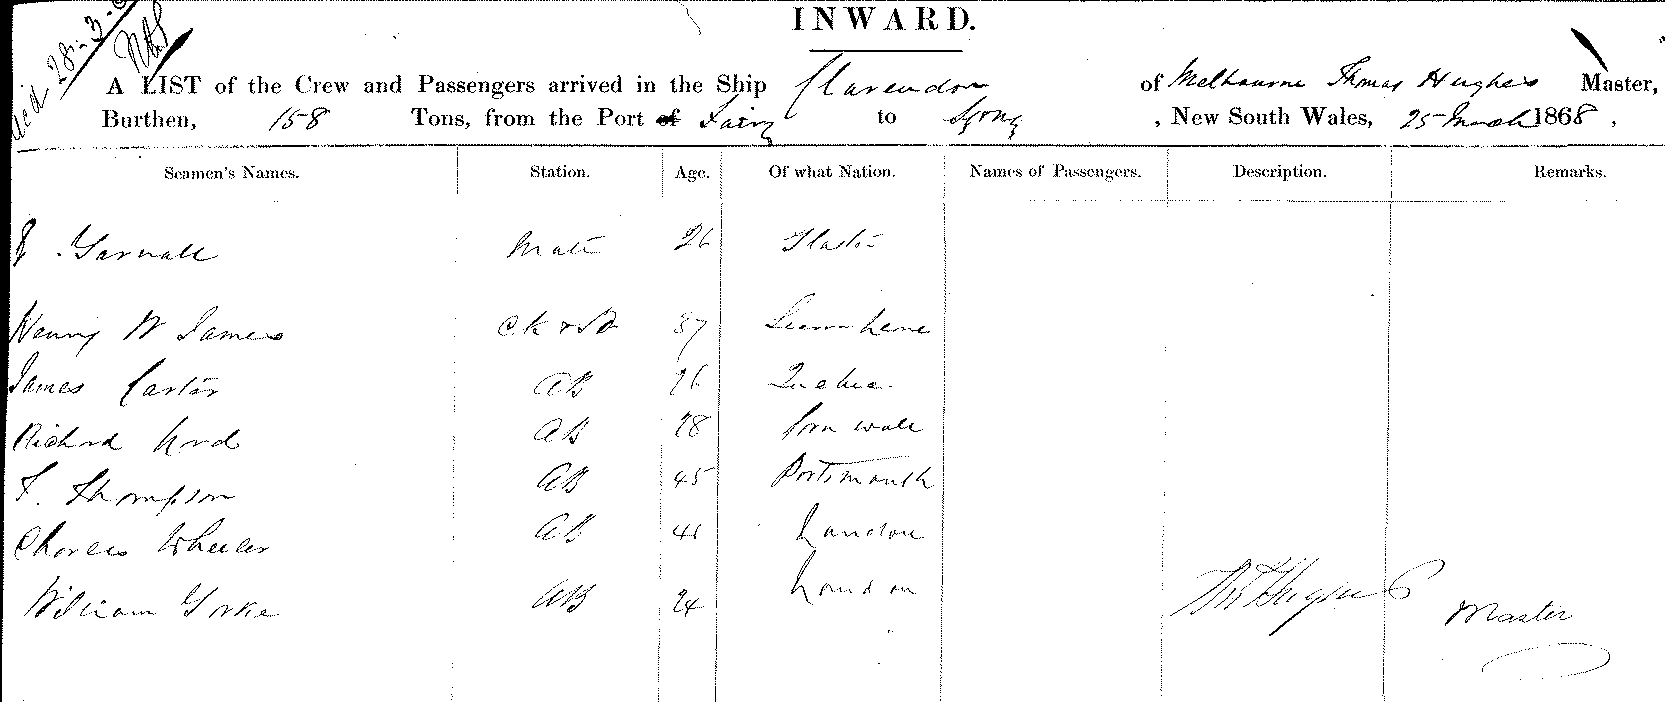 28-3-
INWARD.
A LIST of the Crew and Passengers arrived in the Ship Clarendon of Melbourne Thomas Hughes Master,
Burthen, 158 Tons, from the Port of to , New South Wales, 25 March 1868,
Seamen's Names. Station. Age. Of what Nation. Names of Passengers. Description. Remarks.
Mate 26
Henry W James Ck & Sd 37
James Carter AB 26 Quebec
Richard AB 28 Cornwall
F. Thompson AB 45 Portsmouth
Charles Wheeler AB London
William Yorke AB 24 London
Thos Hughes
Master